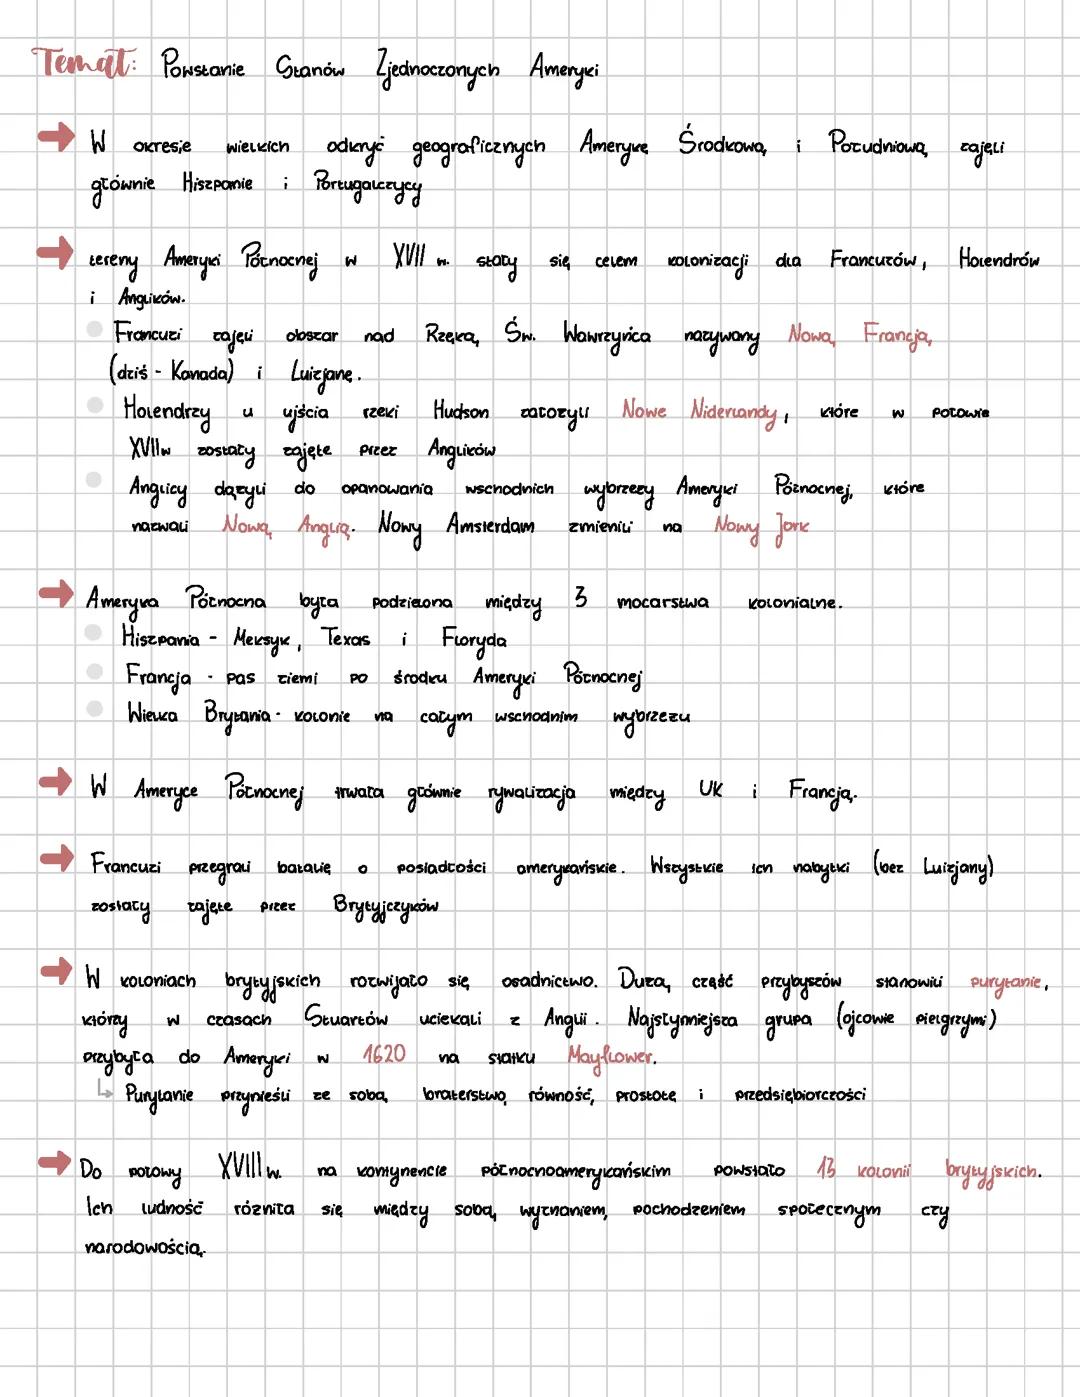 Temat: Powstanie Stanów Zjednoczonych Ameryki
W okresie wielkich odkryć geograficznych Amerykę Środkową i Południową zajęli
głównie Hiszpanie i Portugalczycy
tereny Ameryki Północnej w XVII w. stały się celem kolonizacji dla Francuzów, Holendrów
i Anglików.
Francuzi zajęli obszar nad Rzęką Św. Wawrzyńca nazywany Nową Francją
(dziś - Kanada) i Luizjanę.
Holendrzy u ujścia rzeki Hudson założyli Nowe Niderlandy, które w połowie
XVII w zostały zajęte przez Anglików
Anglicy dążyli do opanowania wschodnich wybrzeży Ameryki Północnej, które
nazwali Nową Anglią. Nowy Amsterdam zmienili na Nowy Jork
Ameryka Północna była podzielona między 3 mocarstwa kolonialne.
Hiszpania - Meksyk, Texas i Floryda
Francja - pas ziemi po środku Ameryki Północnej
Wielka Brytania - kolonie na całym wschodnim wybrzeżu
W Ameryce Północnej trwała głównie rywalizacja między UK i Francją.
Francuzi przegrali batalię o posiadłości amerykańskie. Wszystkie ich nabytki (bez Luizjany)
zostały zajęte przez Brytyjczyków
W koloniach brytyjskich rozwijało się osadnictwo. Dużą część przybyszów stanowili purytanie,
którzy w czasach Stuartów uciekali z Anglii. Najsłynniejsza grupa (ojcowie pielgrzymi)
przybyła do Ameryki w 1620 na statku Mayflower.
Purytanie przynieśli ze sobą braterstwo, równość, prostotę i przedsiębiorczości
Do połowy XVIII w. na kontynencie północnoamerykańskim powstało 13 kolonii brytyjskich.
Ich ludność różniła się między sobą wyznaniem, pochodzeniem społecznym czy
narodowością.